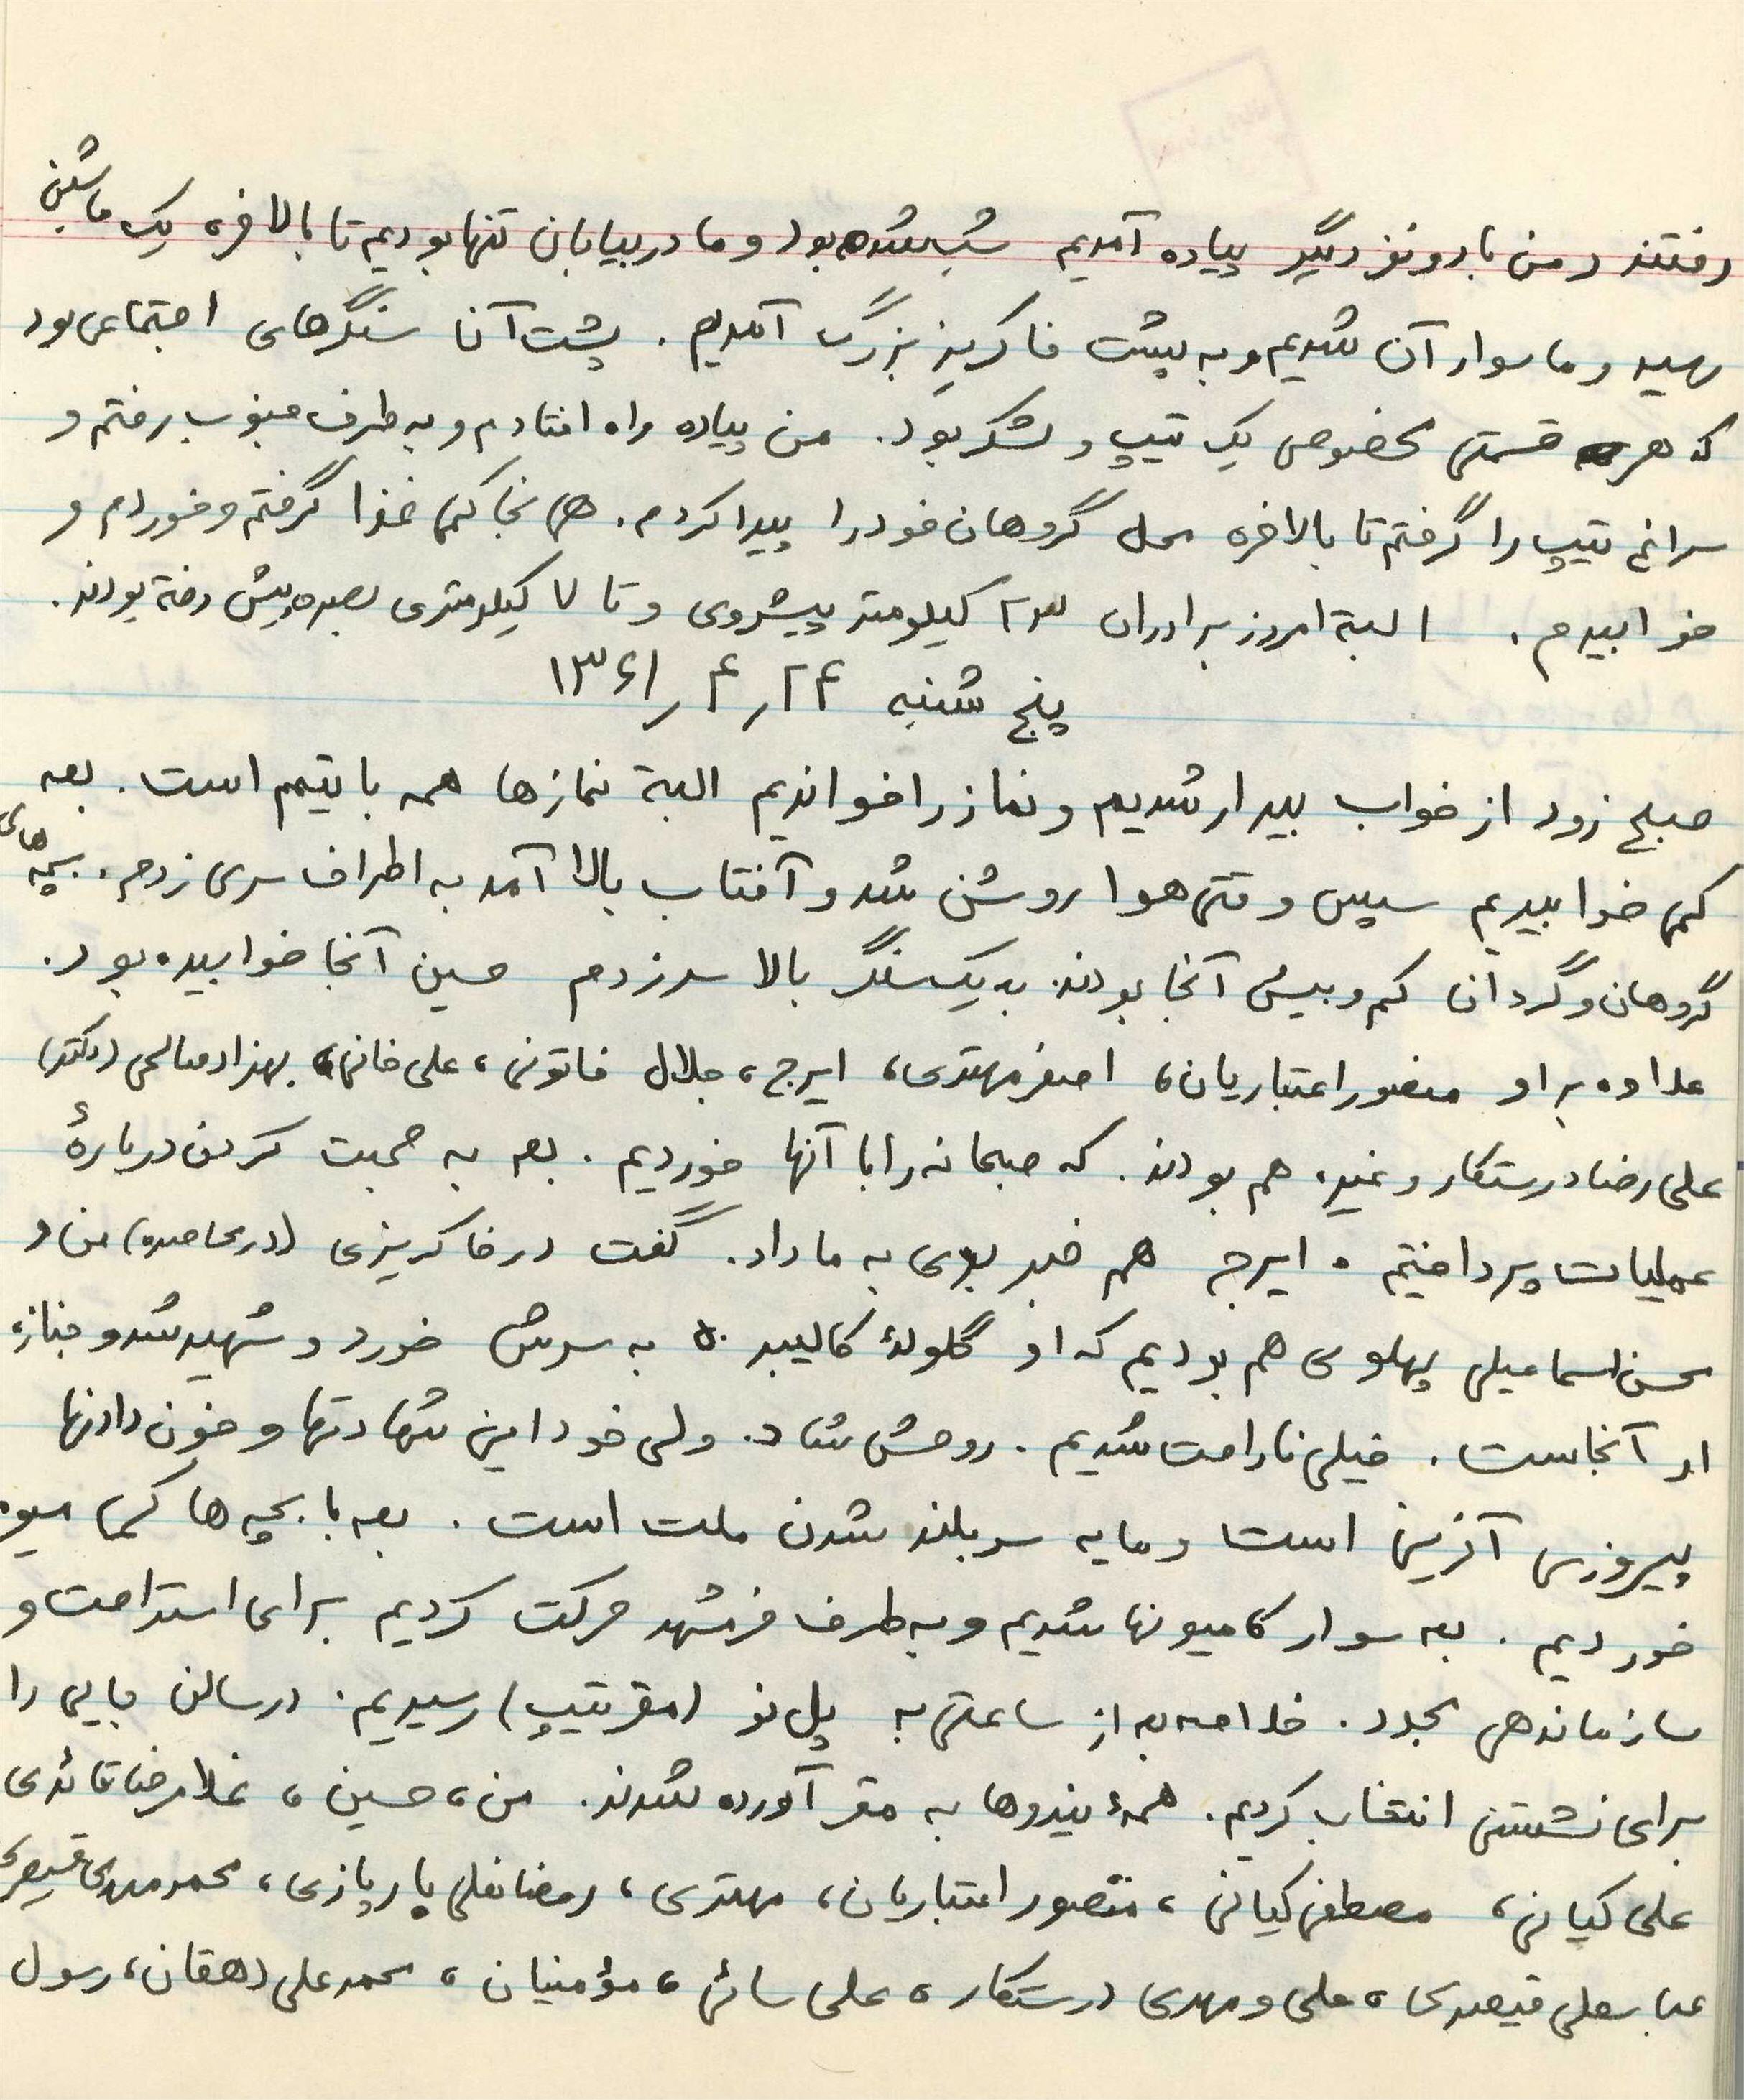 رفتند و من با دو نفر دیگر پیاده آمدیم شب شده بود و ما در بیابان تنها بودیم تا بالاخره یک ماشین
رسید و ما سوار آن شدیم و به پشت خاکریز بزرگ آمدیم . پشت آنا سنگرهای اجتماعی بود
که هر قسمتی مخصوص یک تیپ و لشکر بود . من پیاده راه افتادم و به طرف جنوب رفتم و
سراغ تیپ را گرفتم تا بالاخره محل گروهان خود را پیدا کردم . همانجا کمی غذا گرفتم و خوردم و
خوابیدم . البته امروز برادران ۲۳ کیلومتر پیشروی و تا ۷ کیلومتری بصره پیش رفته بودند .
پنج شنبه ۲۴ ر ۴ ر ۱۳۶۱
صبح زود از خواب بیدار شدیم و نماز را خواندیم البته نمازها همه با تیمم است . بعد
کمی خوابیدیم سپس وقتی هوا روشن شد و آفتاب بالا آمد به اطراف سری زدم . بچه های
گروهان و گردان کم و بیش آنجا بودند . به یک سنگر بالا سر زدم حسین آنجا خوابیده بود .
علاوه بر او منصور اعتباریان ، اصغر مهتری ، ایرج ، جلال خاتونی ، علی خانی ، بهزاد صالحی (دکتر)
علی رضا درستکار و غیره هم بودند . که صبحانه را با آنها خوردیم . بعد به صحبت کردن دربارۀ
عملیات پرداختیم . ایرج هم خبر بدی به ما داد . گفت در خاکریزی (در محاصره) من و
محسن اسماعیلی پهلوی هم بودیم که او گلولۀ کالیبر ۵۰ به سرش خورد و شهید شد و جنازه
او آنجاست . خیلی ناراحت شدیم . روحش شاد . ولی خود این شهادتها و خون دادنها
پیروزی آفرین است و مایه سربلند شدن ملت است . بعد با بچه ها کمی میوه
خوردیم . بعد سوار کامیونها شدیم و به طرف خرمشهر حرکت کردیم برای استراحت و
سازماندهی مجدد . خلاصه بعد از ساعتی به پل نو (مقر تیپ) رسیدیم . در سالن جایی را
برای نشستن انتخاب کردیم . همۀ نیروها به مقر آورده شدند . من ، حسین ، غلامرضا قائدی
علی کیانی ، مصطفی کیانی ، منصور اعتباریان ، مهتری ، رمضانعلی پارپازی ، محمد مهدی قیصری
عباسعلی قیصری ، علی و مهدی درستکار ، علی سائی ، مؤمنیان ، محمد علی دهقان ، رسول